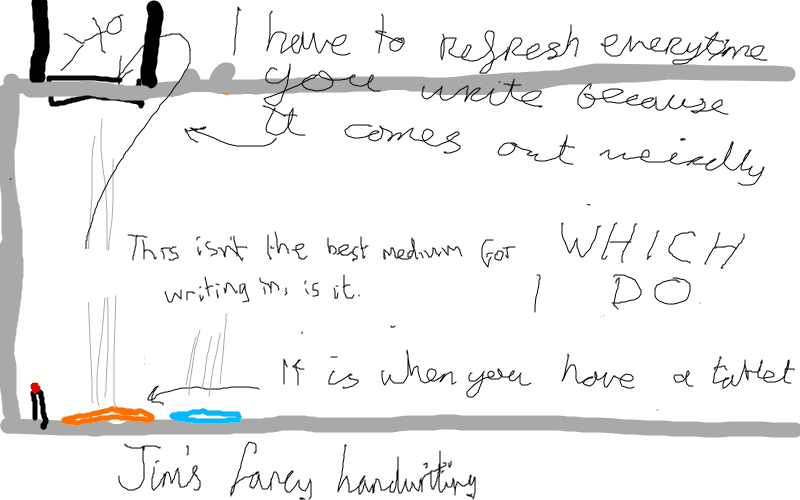 I have to refresh everytime
you write because
it comes out weirdly
This isn't the best medium for
writing in, is it.
WHICH
I DO
It is when you have a tablet
Jim's fancy handwriting